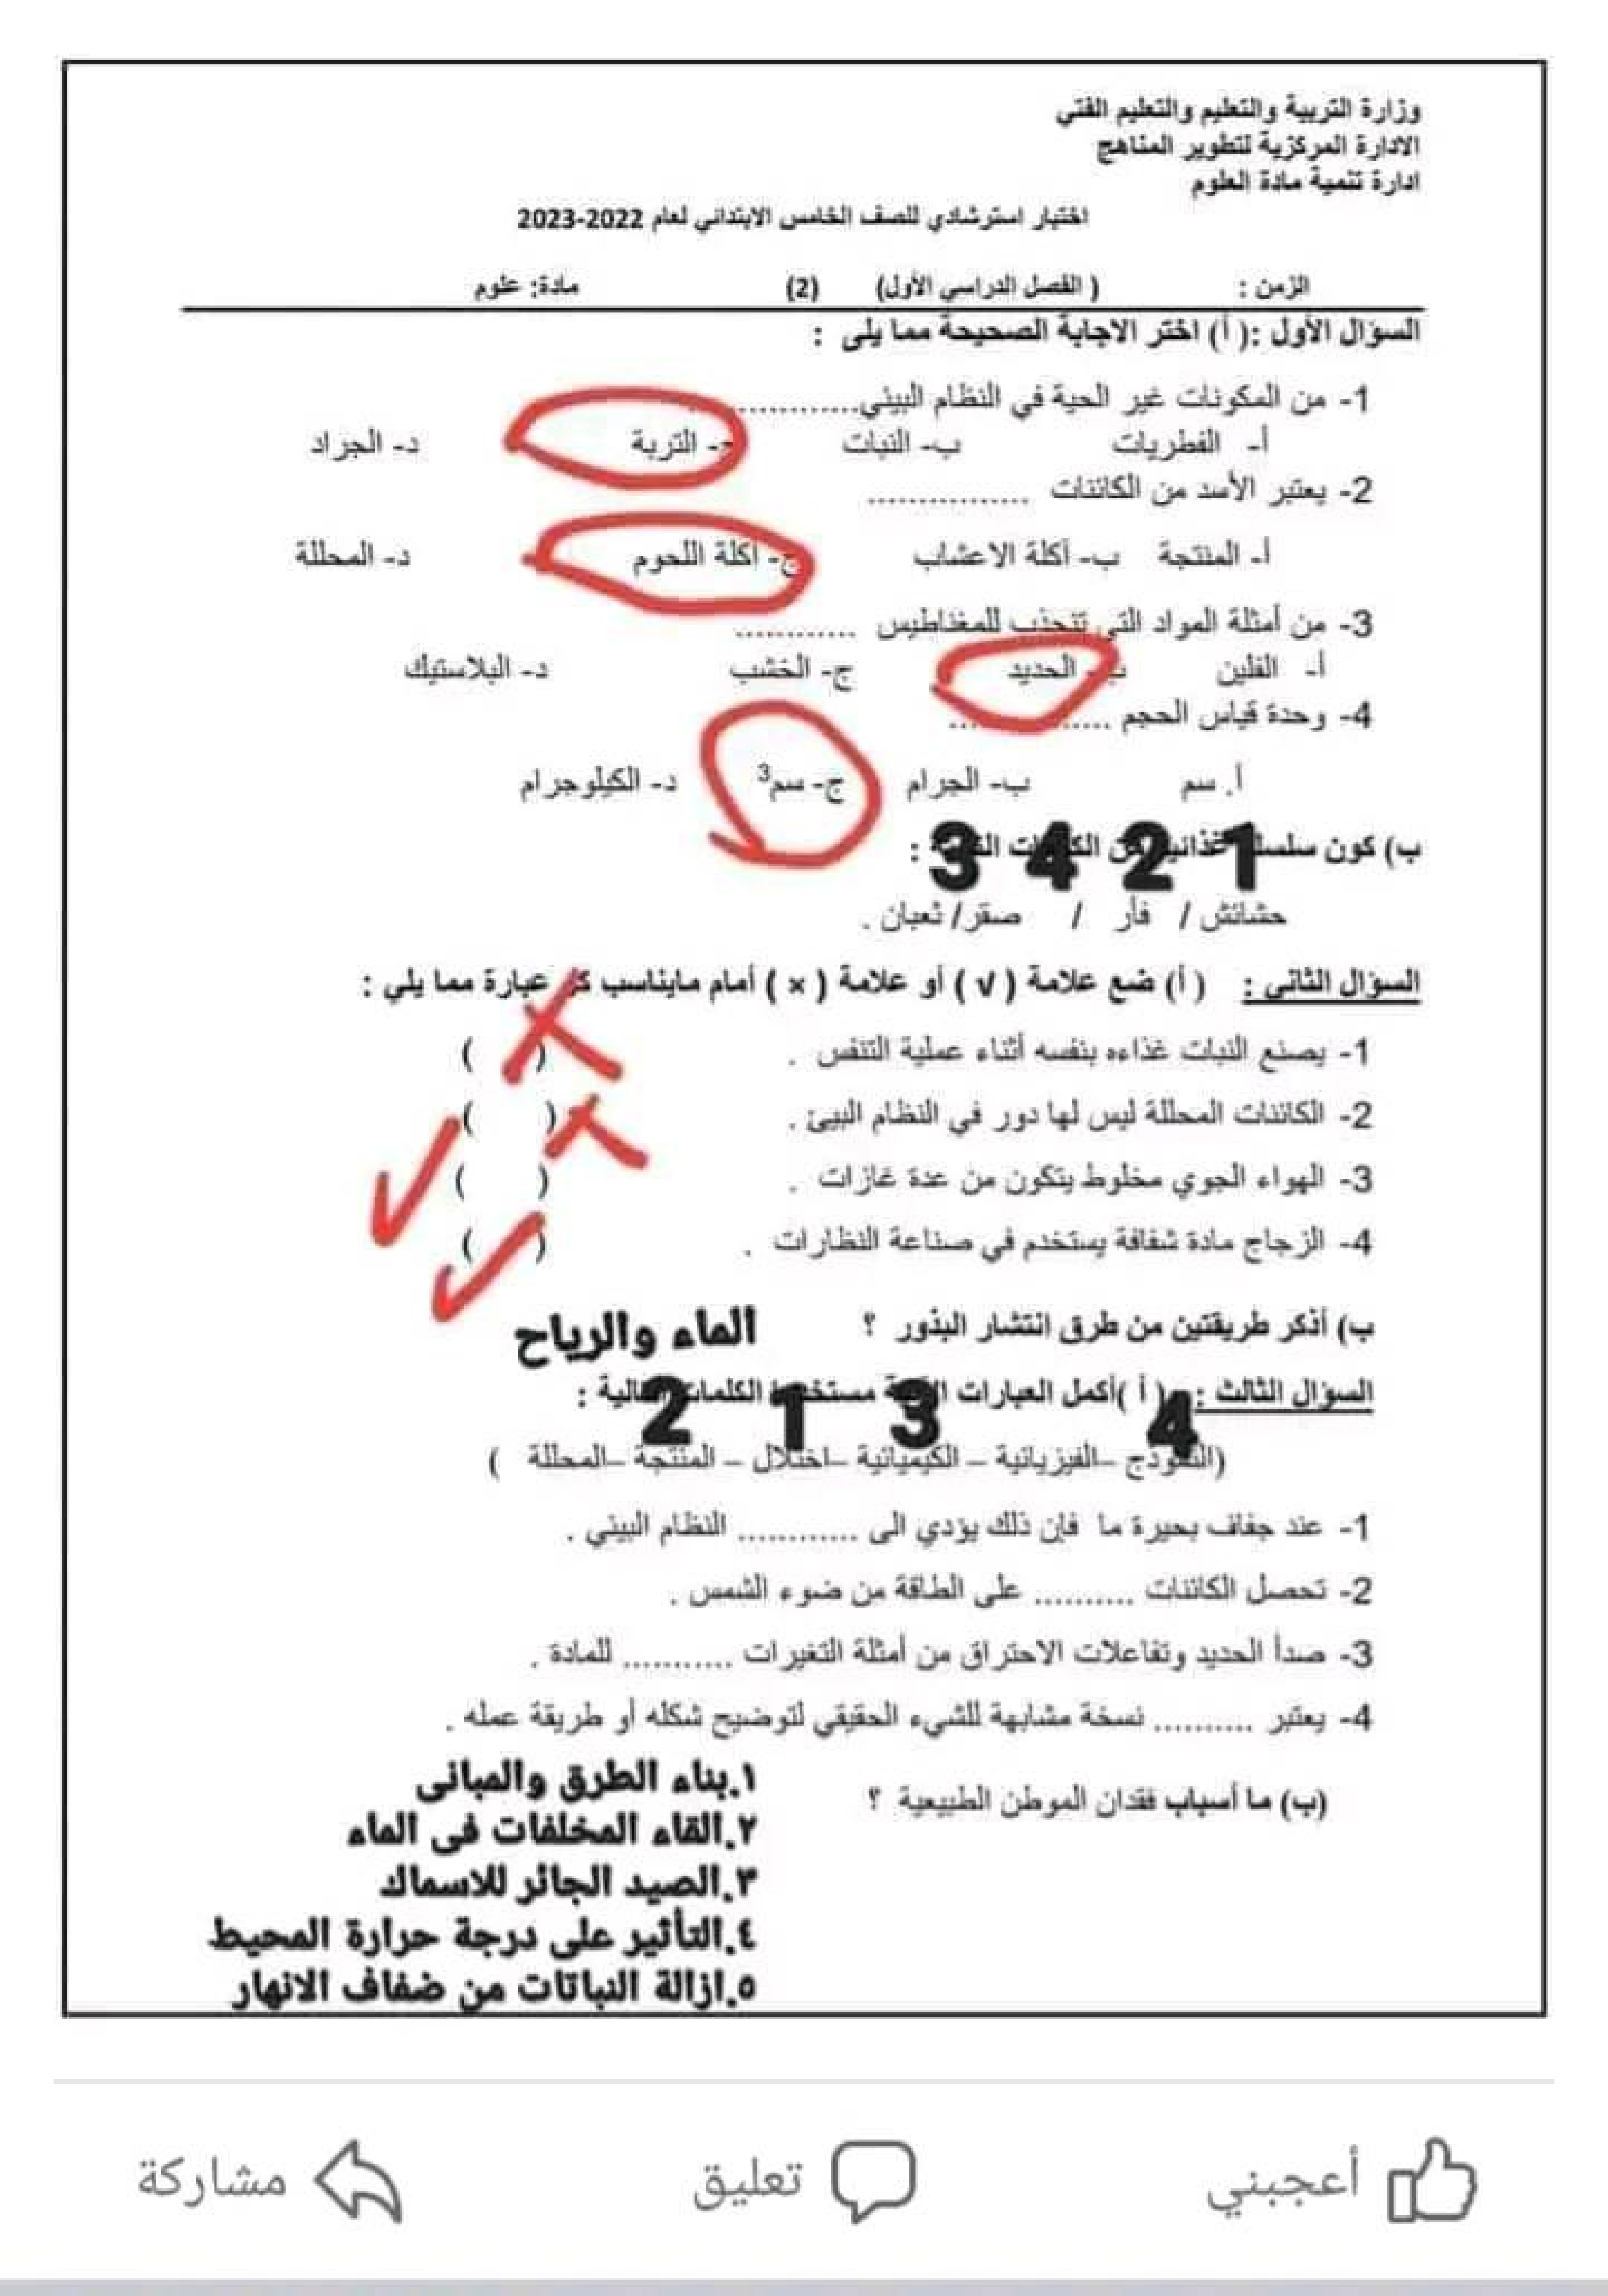 وزارة التربية والتعليم والتعليم الفني
الادارة المركزية لتطوير المناهج
ادارة تنمية مادة العلوم
اختبار استرشادي للصف الخامس الابتدائي لعام 2022-2023
الزمن : ( الفصل الدراسي الأول) (2) مادة: علوم
السؤال الأول :( أ) اختر الاجابة الصحيحة مما يلى :
1- من المكونات غير الحية في النظام البيئي..............
أ- الفطريات ب- النبات ج- التربة د- الجراد
2- يعتبر الأسد من الكائنات ................
أ- المنتجة ب- أكلة الاعشاب ج- أكلة اللحوم د- المحللة
3- من أمثلة المواد التي تنجذب للمغناطيس ............
أ- الفلين ب- الحديد ج- الخشب د- البلاستيك
4- وحدة قياس الحجم ................
أ. سم ب- الجرام ج- سم3 د- الكيلوجرام
1 2 4 3
ب) كون سلسلة غذائية من :
حشائش / فأر / صقر/ ثعبان .
السؤال الثانى : ( أ) ضع علامة ( √ ) أو علامة ( × ) أمام مايناسب كل عبارة مما يلي :
1- يصنع النبات غذاءه بنفسه أثناء عملية التنفس . ( )
2- الكائنات المحللة ليس لها دور في النظام البيئ . ( )
3- الهواء الجوي مخلوط يتكون من عدة غازات . ( )
4- الزجاج مادة شفافة يستخدم في صناعة النظارات . ( )
ب) أذكر طريقتين من طرق انتشار البذور ؟ الماء والرياح
السؤال الثالث : ( أ )أكمل العبارات الكلمات :
4 3 1 2
(النموذج –الفيزيائية – الكيميائية –اختلال – المنتجة –المحللة )
1- عند جفاف بحيرة ما فإن ذلك يؤدي الى ............ النظام البيئي .
2- تحصل الكائنات .......... على الطاقة من ضوء الشمس .
3- صدأ الحديد وتفاعلات الاحتراق من أمثلة التغيرات ........... للمادة .
4- يعتبر .......... نسخة مشابهة للشيء الحقيقي لتوضيح شكله أو طريقة عمله .
(ب) ما أسباب فقدان الموطن الطبيعية ؟
١.بناء الطرق والمبانى
٢.القاء المخلفات فى الماء
٣.الصيد الجائر للاسماك
٤.التأثير على درجة حرارة المحيط
٥.ازالة النباتات من ضفاف الانهار
أعجبني تعليق مشاركة